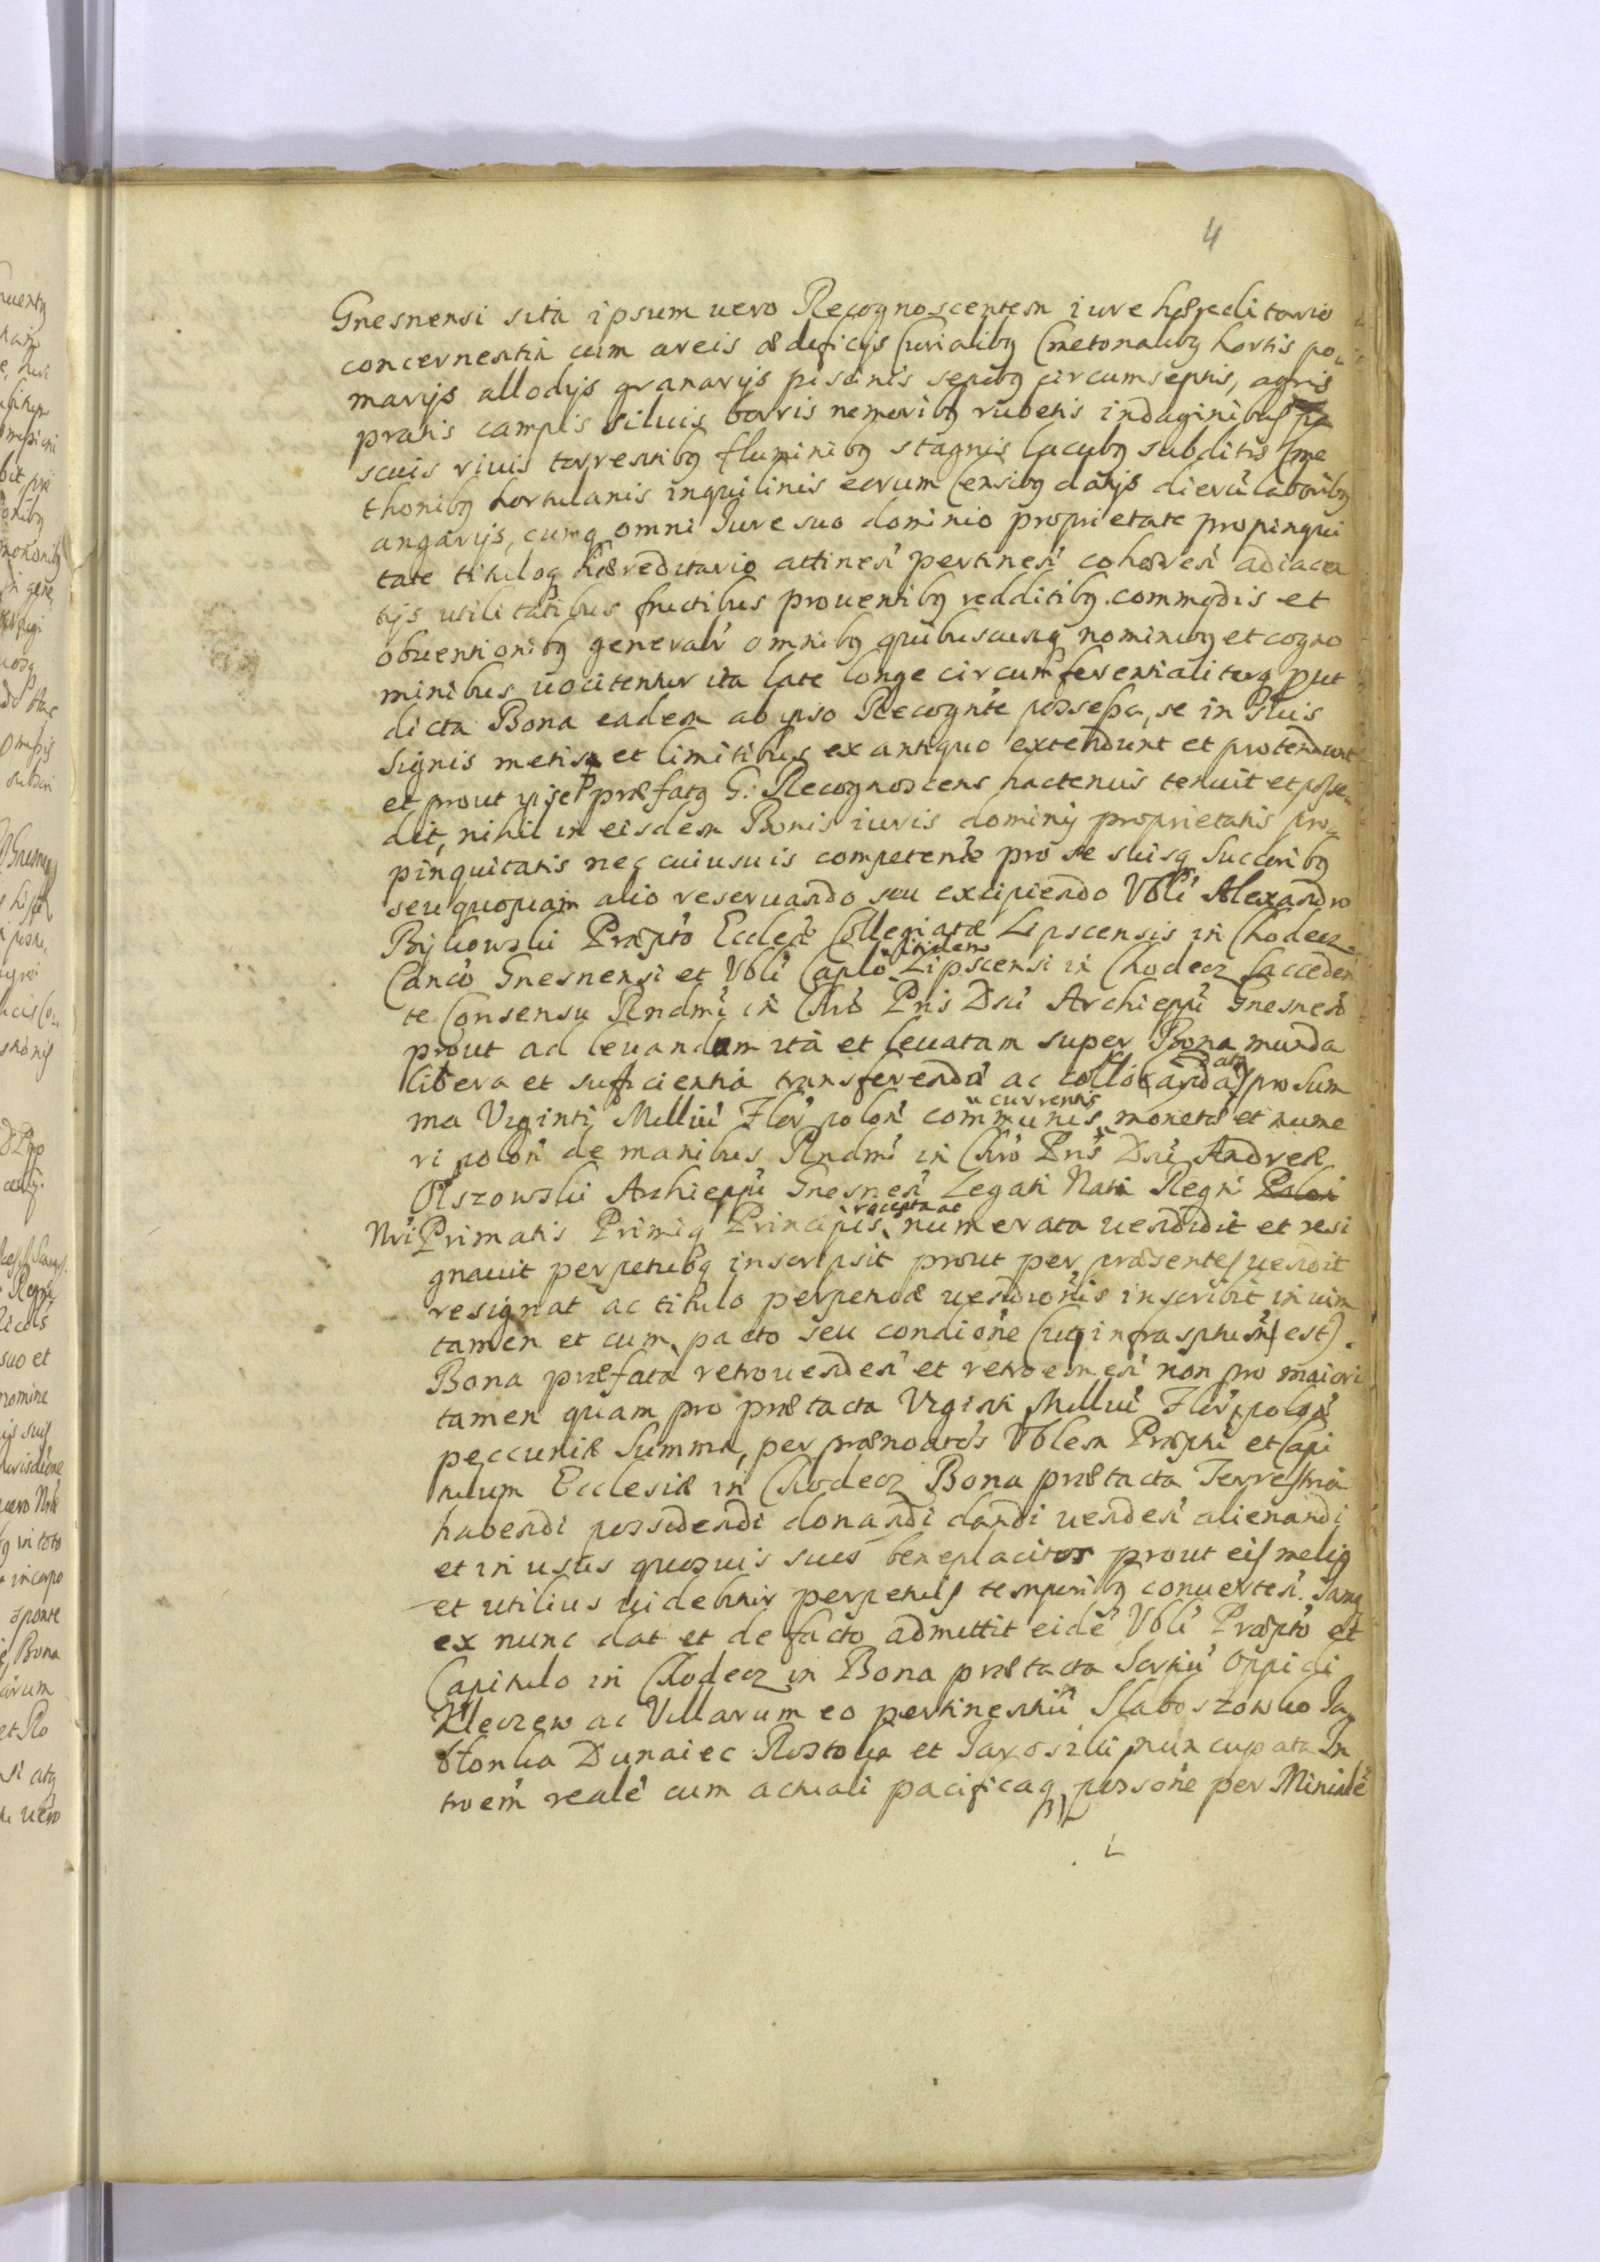 4
Gnesnensi sita ipsum uero Recognoscentem iure hæreditario
concernentia cum areis ædificijs Curialibq Cmetonalibq hortis po-
marijs allodijs granarijs piscinis sepibq circumseptis, agris
pratis campis siluis borris nemoribq rubetis indaginibus pa
scuis riuis torrentibq fluminibq stagnis lacubq subditis Cme
thonibq hortulanis inquilinis eorum Censibq datijs dierū laboribq
angarijs, cumq omni Iure suo dominio proprietate propinqui
tate tituloq hæreditario attinen pertinen cohæren adiacen
tijs utilitatibus fructibus prouentibq redditibq commodis et
obuentionibq generalr omnibq quibuscunq nominibq et cogno
minibus uocitentur ita late longe circumferentialiterq put
dicta Bona eadem ab ipso Recognte possessa, se in suis
Signis metis et limitibus ex antiquo extendunt et protendunt
et prout ipse præfatq G. Recognoscens hactenus tenuit et posse-
dit, nihil in eisdem Bonis iuris dominij proprietatis pro-
pinquitatis nec cuiusuis competente pro se suisq Succoribq
seu quopiam alio reseruando seu excipiendo Vbli Alexandro
Bykowski Præpto Eccleæ Collegiatæ Lipscensis in Chodecz
Canco Gnesnensi et Vbli Caplo itidem Lipscensi in Chodecz Jacceden
te Consensu Rndmi in Chro Pris Dni Archieppi Gnesnen
prout ad leuandam ita et leuatam super Bona munda
libera et sufficientia transferenda ac collocanda atq pro Sum
ma Viginti Milliu Flor polon communis u currentis monetæ et nume
ri polon de manibus Rndmi in Chro Pris Dni Andreæ
Olszowski Archieppi Gnesnen Legati Nati Regni
Nri Primatis Primiq Principis recepta ac numerata uendidit et resi
gnauit perpetuoq inscripsit prout per præsentes uendit
resignat ac titulo perpetuæ uenditionis inscribit in uim
tamen et cum pacto seu condione (uti infrasptum est).
Bona præfata retrouenden et retroemen non pro maiori
tamen quam pro prætacta Viginti Milliu Flor polon
peccuniæ Summa, per prænoatos Vblem Præptu et Capi
tulum Ecclesiæ in Chodecz Bona prætacta Terrestria
habendi possidendi donandi dandi uenden alienandi
et in usus quosuis suos beneplacitos prout eis meliq
et utilius uidebitur perpetuis temporibq conuerten. Iamq
ex nunc dat et de facto admittit eidē Vbli Præpto et
Capitulo in Chodecz in Bona prætacta Sortiū Oppidi
Kleczew ac Villarum eo pertinentiū Slaboszowko Ja
blonka Dunaiec Roztoka et Jaroszki nuncupata In
troem realē cum actuali pacificaq possone per Ministē